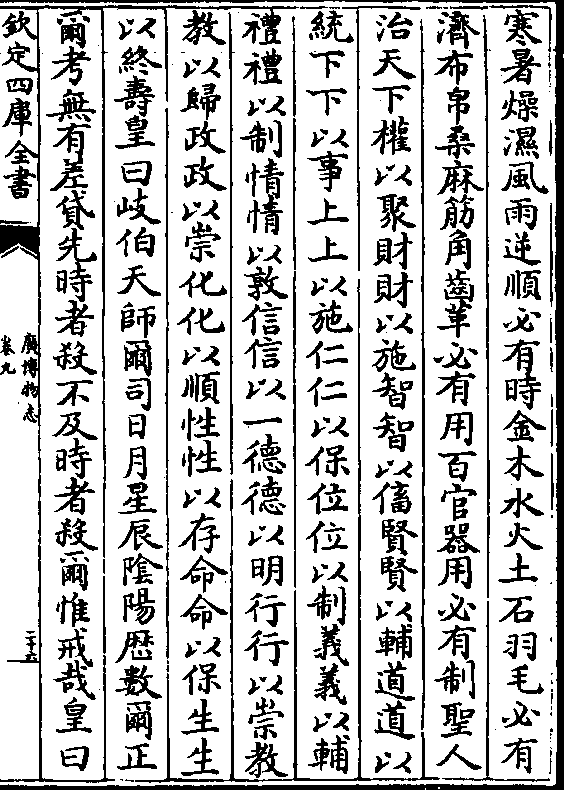 寒暑燥濕風雨逆順必有時金木水火土石羽毛必有
濟布帛桑麻筋角齒革必有用百官器用必有制聖人
治天下權以聚財財以施智智以偹賢賢以輔道道以
統下下以事上上以施仁仁以保位位以制義義以輔
禮禮以制情情以敦信信以一德德以明行行以崇教
教以歸政政以崇化化以順性性以存命命以保生生
以終壽皇曰岐伯天師爾司日月星辰陰陽厯數爾正
爾考無有差貸先時者殺不及時者殺爾惟戒哉皇曰
欽定四庫全書
廣博物志
卷九
二十六